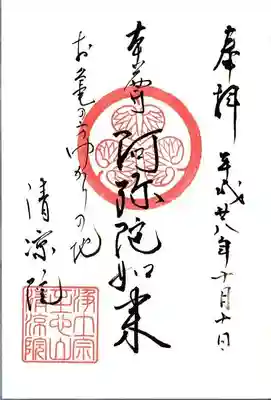 奉拝 平成廿八年十月十日
本尊 阿弥陀如来
お亀の方ゆかりの地
清凉院
浄土宗
清凉院